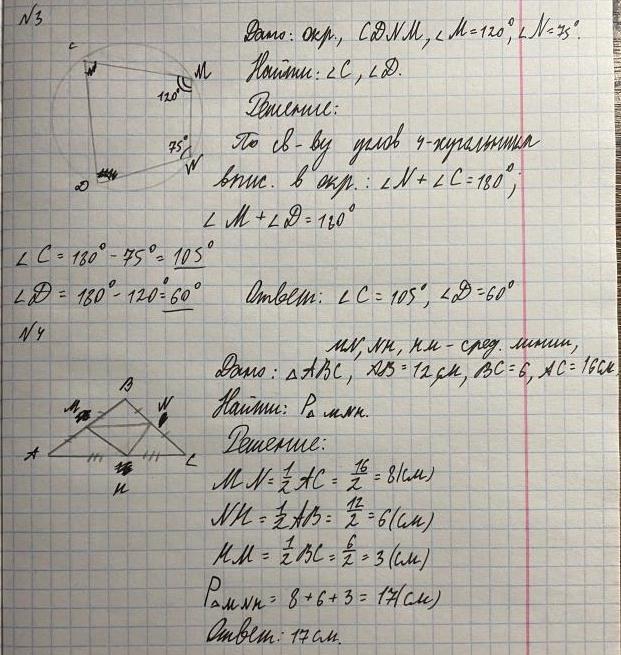 №3
Дано: окр., CDNM, ∠M=120°, ∠N=75°.
Найти: ∠C, ∠D.
Решение:
По св-ву углов 4-хугольника
впис. в окр.: ∠N+∠C=180°;
∠M+∠D=180°
C
M
120°
75°
N
D
∠C=180°-75°=105°
∠D=180°-120°=60°
Ответ: ∠C=105°, ∠D=60°
№4
MN, NH, HM - сред. линии,
Дано: △ABC, AB=12см, BC=6, AC=16см
Найти: P△MNH.
Решение:
B
M
N
A
C
H
MN=1/2AC=16/2=8(см)
NH=1/2AB=12/2=6(см)
HM=1/2BC=6/2=3(см)
P△MNH=8+6+3=17(см)
Ответ: 17см.